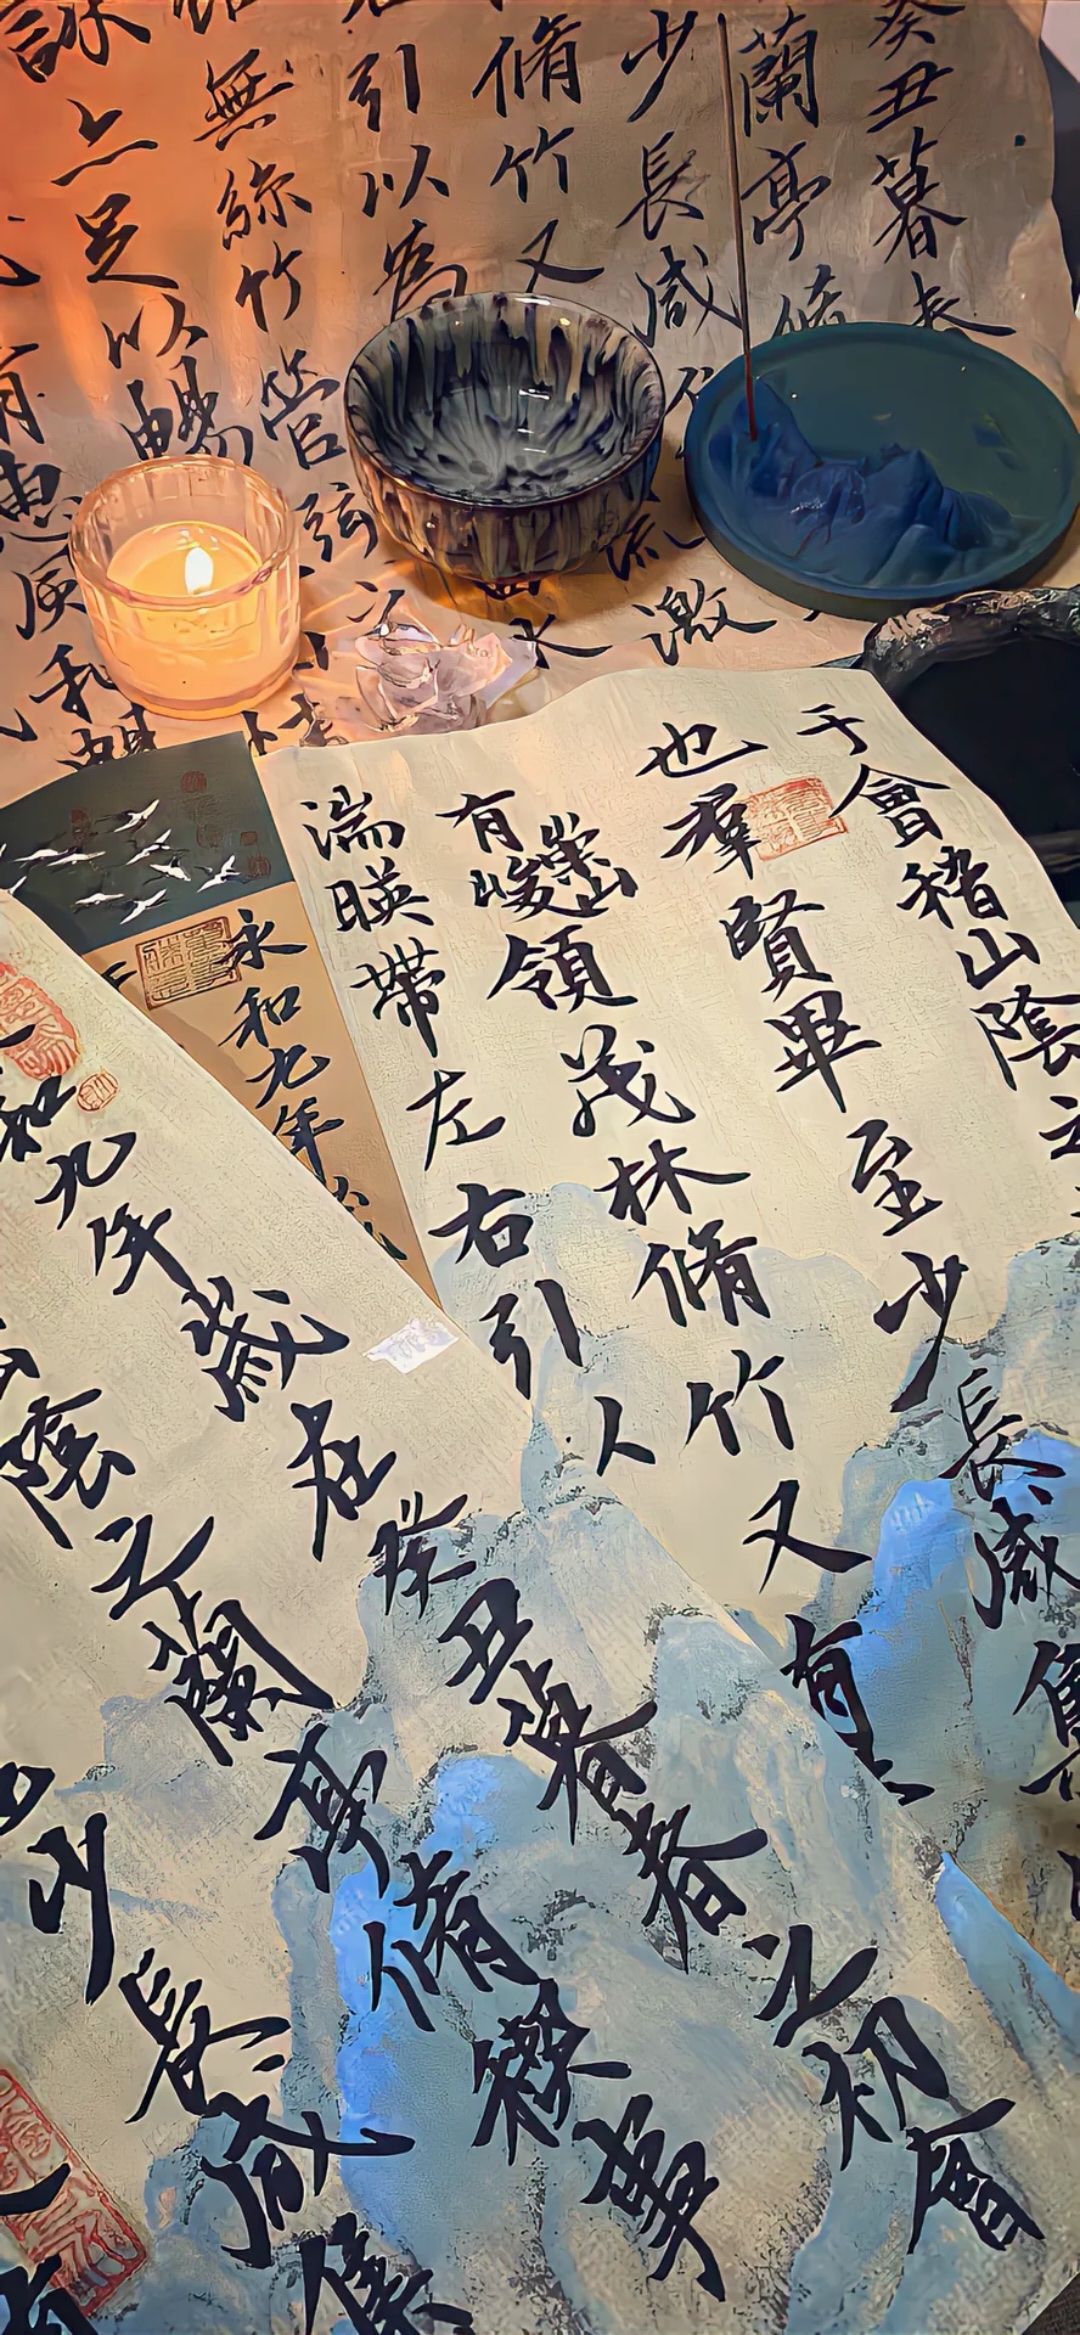 癸丑暮春
蘭亭脩
少長咸
脩竹又流激
引以為水
無絲竹管弦之
詠亦足以暢
惠風和暢
于會稽山陰之
也羣賢畢至少長咸集
有崇山峻領茂林脩竹又有
湍暎帶左右引以
永和九年歲
和九年歲在癸丑暮春之初會
陰之蘭亭脩禊事
少長咸集